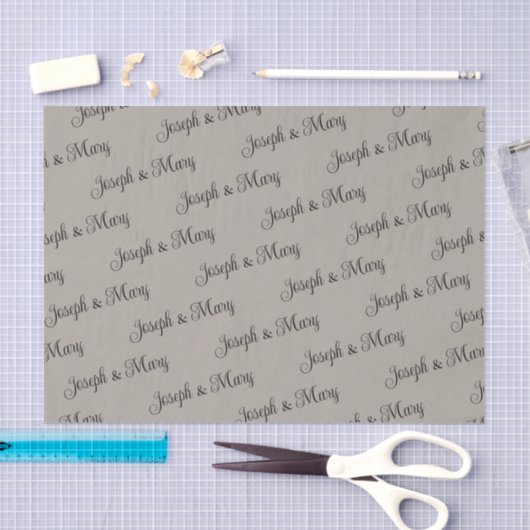 Joseph & Mary
Joseph & Mary
Joseph & Mary
Joseph & Mary
Joseph & Mary
Joseph & Mary
Joseph & Mary
Joseph & Mary
Joseph & Mary
Joseph & Mary
Joseph & Mary
Joseph & Mary
Joseph & Mary
Joseph & Mary
Joseph & Mary
Joseph & Mary
Joseph & Mary
Joseph & Mary
Joseph & Mary
Joseph & Mary
Joseph & Mary
Joseph & Mary